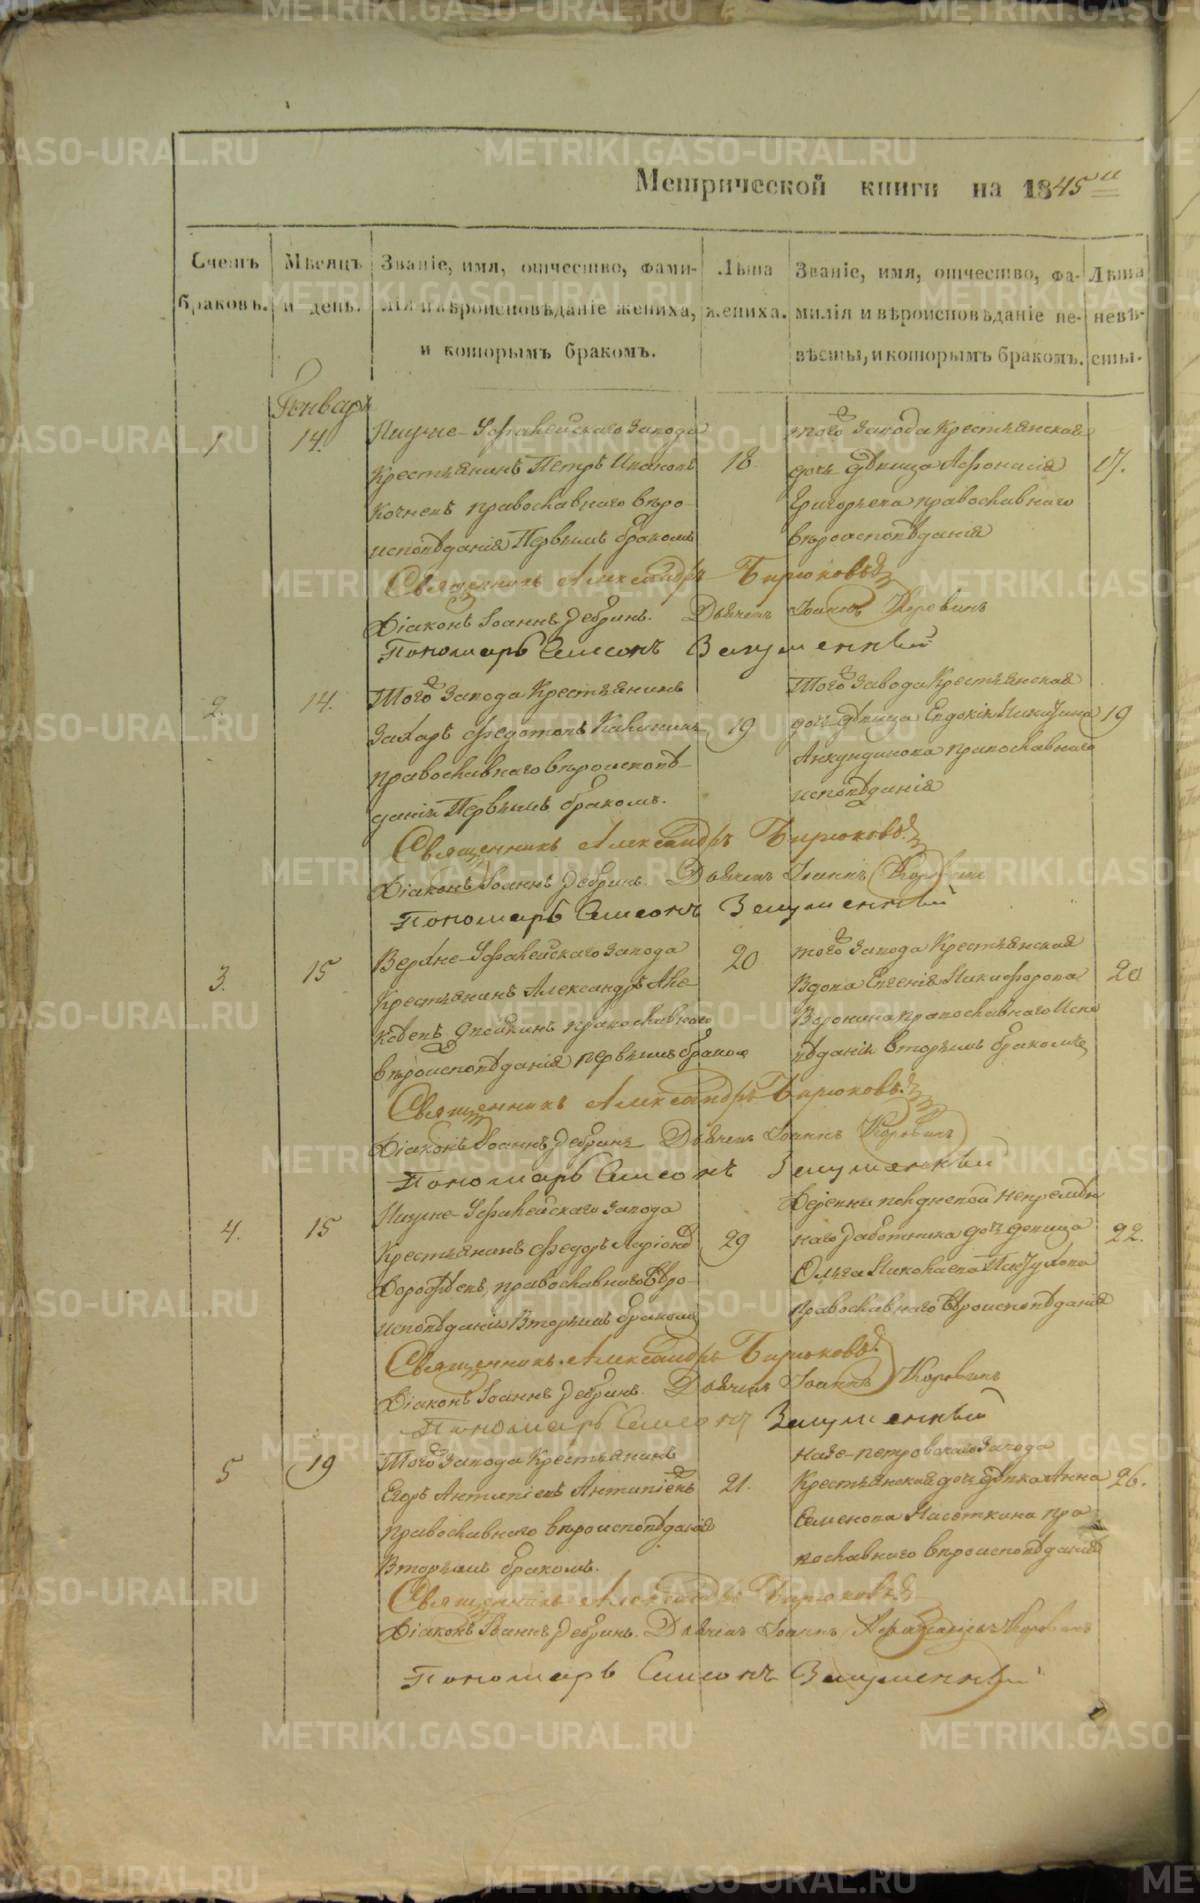 Метрической книги на 1845й
Счетъ браковъ.
Мѣсяцъ и день.
Званіе, имя, отчество, фами-
лія и вѣроисповѣданіе жениха,
и которымъ бракомъ.
Лѣта
жениха.
Званіе, имя, отчество, фа-
милія и вѣроисповѣданіе не-
вѣсты, и которымъ бракомъ.
Лѣта
невѣ-
сты.
Январь
1 14. Нижне-Уфалейскаго Завода 18 того Завода Крестьянская 17.
Крестьянинъ Петръ Ивановъ дочь дѣвица Афонасія
Кочневъ православнаго вѣро- Григорьева православнаго
исповѣданія Первымъ бракомъ вѣроисповѣданія
Священникъ Александръ Бирюковъ
Діаконъ Іоаннъ Дебринъ. Дьячекъ Іоаннъ Коровинъ
Пономарь Симеонъ
2. 14. Того Завода Крестьянинъ 19 Того Завода Крестьянская 19
Захаръ Федотовъ дочь дѣвица Евдокія Никитина
православнаго вѣроисповѣ- Анкундинова православнаго
данія Первымъ бракомъ. исповѣданія
Священникъ Александръ Бирюковъ
Діаконъ Іоаннъ Дебринъ. Дьячекъ Іоаннъ Коровинъ
Пономарь Симеонъ
3. 15 Верхне-Уфалейскаго Завода 20 того Завода Крестьянская 20
Крестьянинъ Александръ Вдова Евгенія Никифорова
православнаго Воронина православнаго Испо
вѣроисповѣданія первымъ бракомъ вѣданія вторымъ бракомъ
Священникъ Александръ Бирюковъ
Діаконъ Іоаннъ Дебринъ Дьячекъ Іоаннъ Коровинъ
Пономарь Симеонъ
4. 15 Нижне-Уфалейскаго Завода 29 Деревни непремѣн 22.
Крестьянинъ Федоръ Ларіоновъ наго работника дочь девица
Дорофѣевъ, православнаго вѣро- Ольга Николаева
исповѣданія Вторымъ бракомъ православнаго вѣроисповѣданія
Священникъ Александръ Бирюковъ
Діаконъ Іоаннъ Дебринъ. Дьячекъ Іоаннъ Коровинъ
Пономарь Симеонъ
5 19 Того Завода Крестьянинъ 21. Назе-петровскаго Завода 26.
Егоръ Антипіевъ Антипіевъ Крестьянская дочь дѣвка Анна
православнаго вѣроисповѣданія Семенова Насѣткина пра
Вторымъ бракомъ. вославнаго вѣроисповѣданія
Священникъ Александръ Бирюковъ
Діаконъ Іоаннъ Дебринъ. Дьячекъ Іоаннъ Коровинъ
Пономарь Симеонъ
METRIKI.GASO-URAL.RU